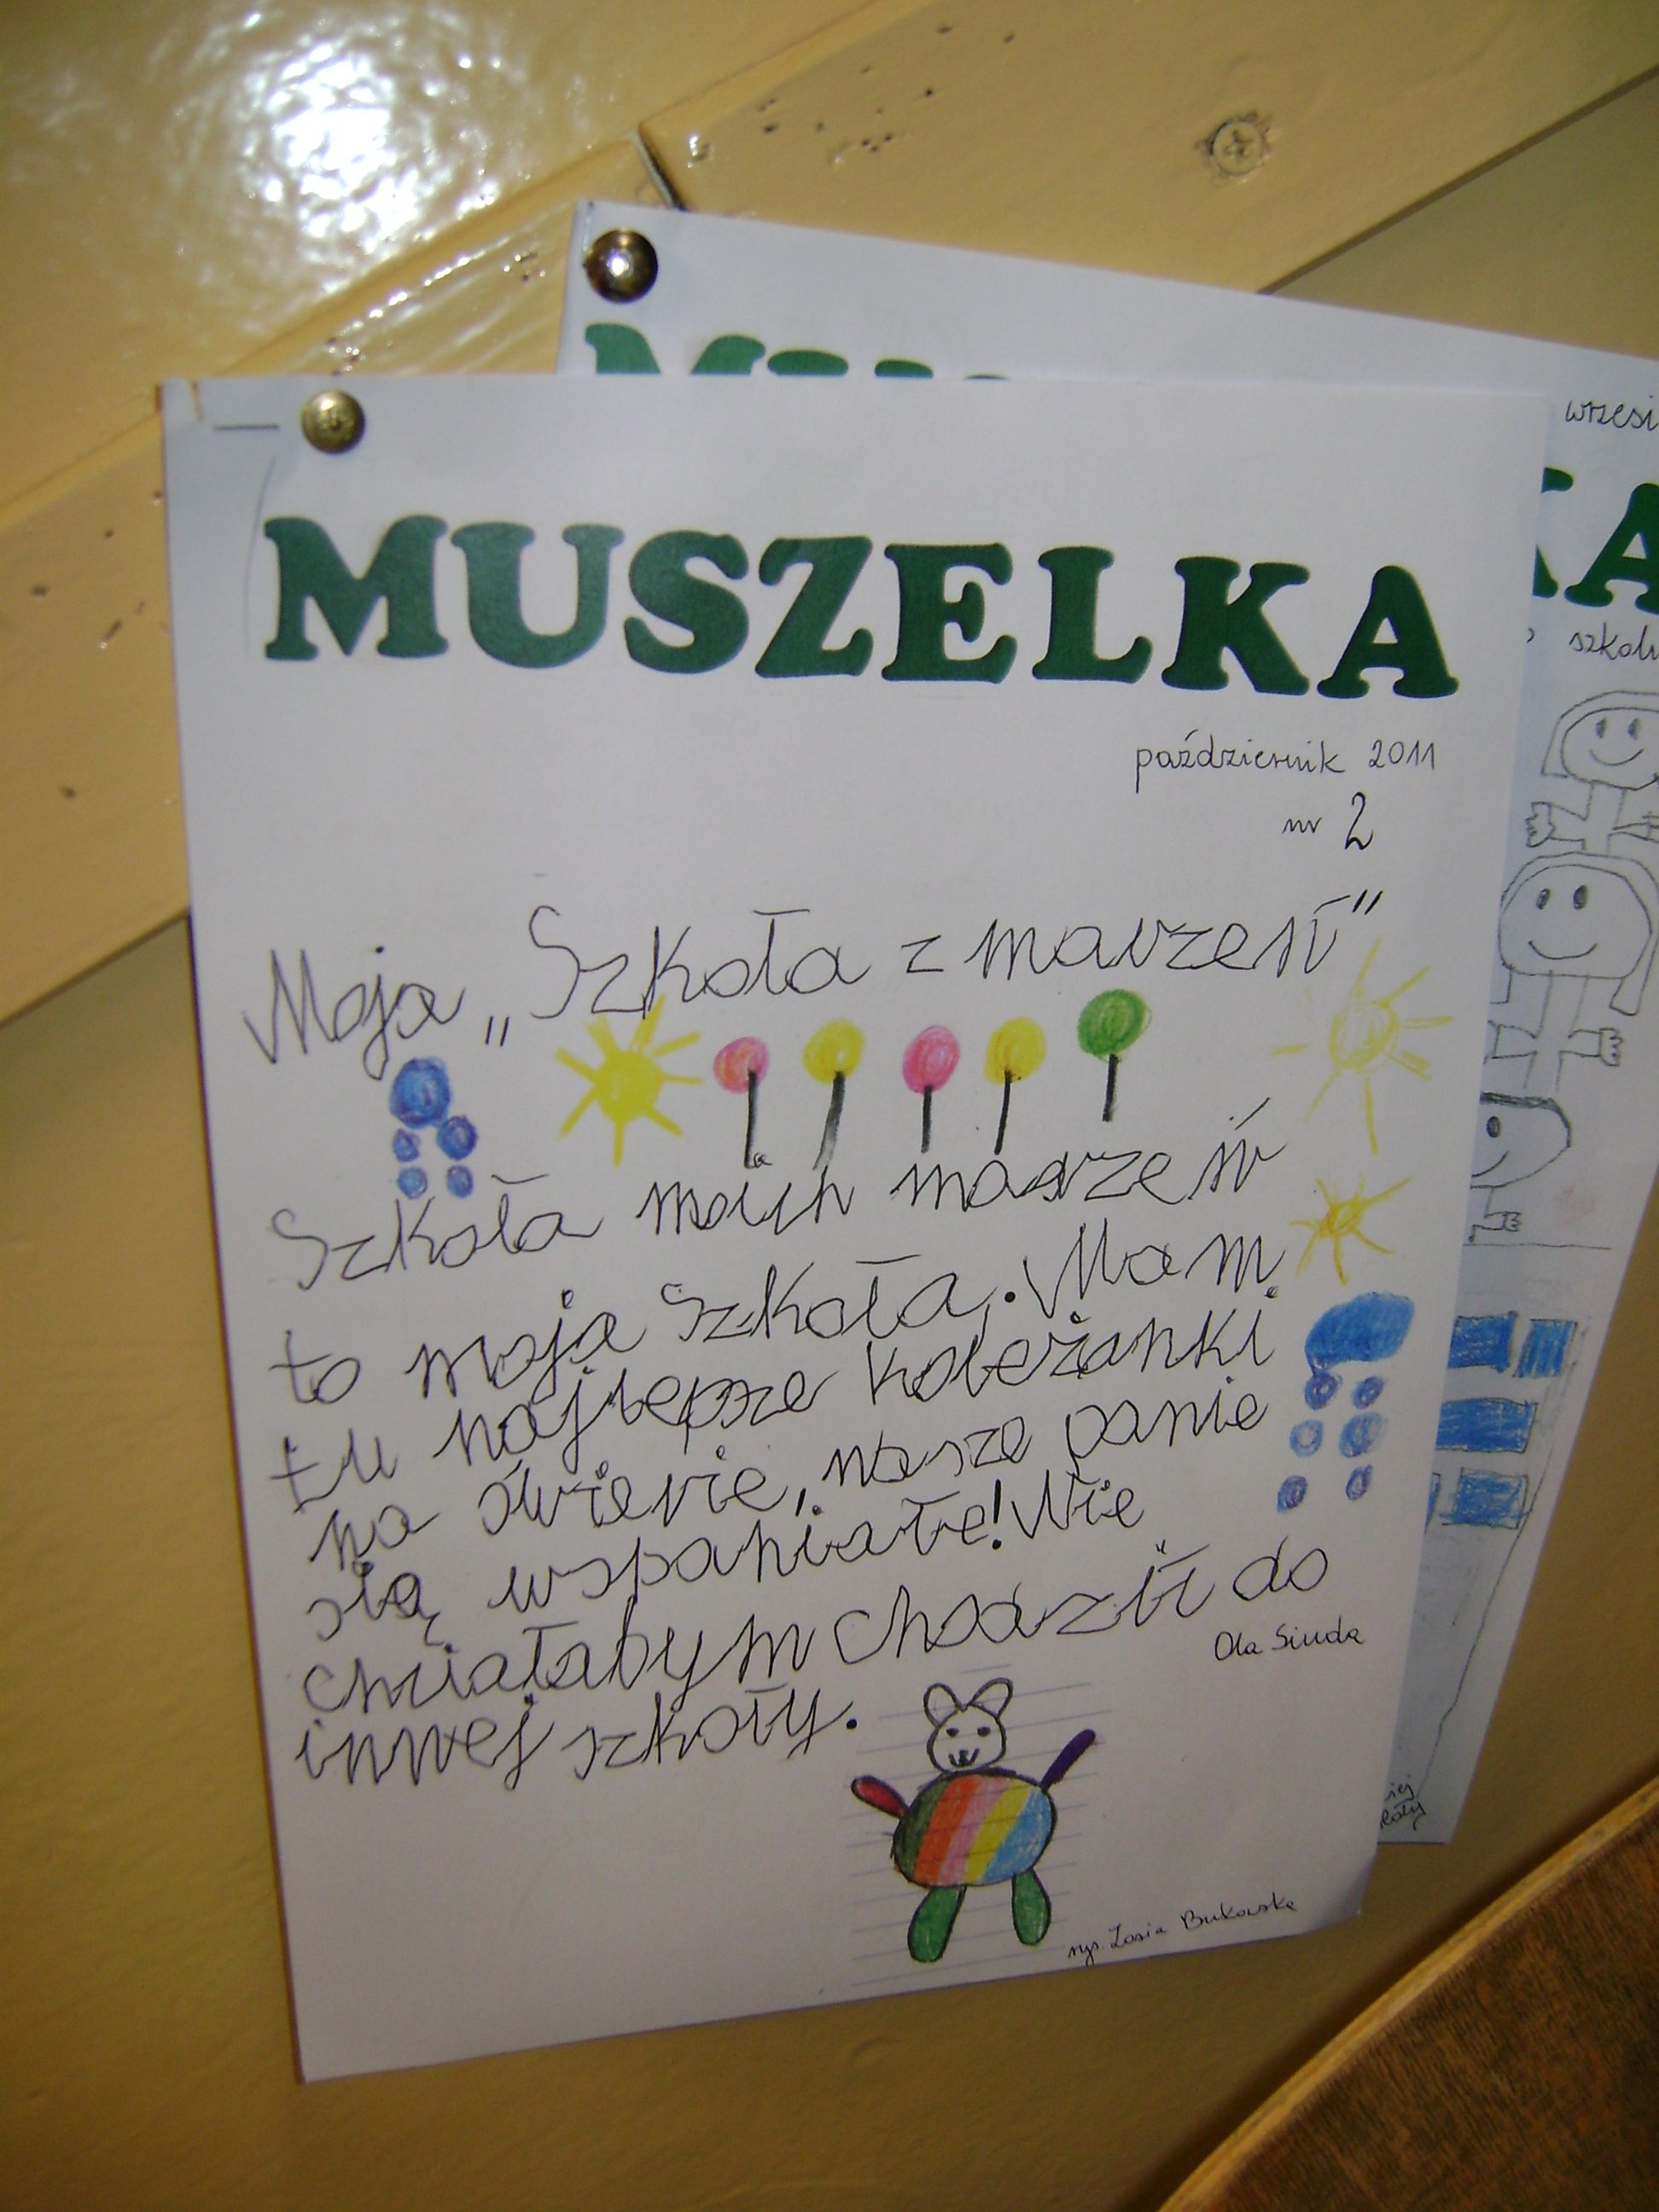 MUSZELKA
październik 2011
nr 2
Moja „Szkoła z marzeń"
Szkoła moich marzeń
to moja szkoła. Mam
tu najlepsze koleżanki
na świecie, nasze panie
są wspaniałe! Nie
chciałabym chodzić do
innej szkoły.
Ola Siuda
rys. Zosia Bukowska
wrzesi
KA
szkoln